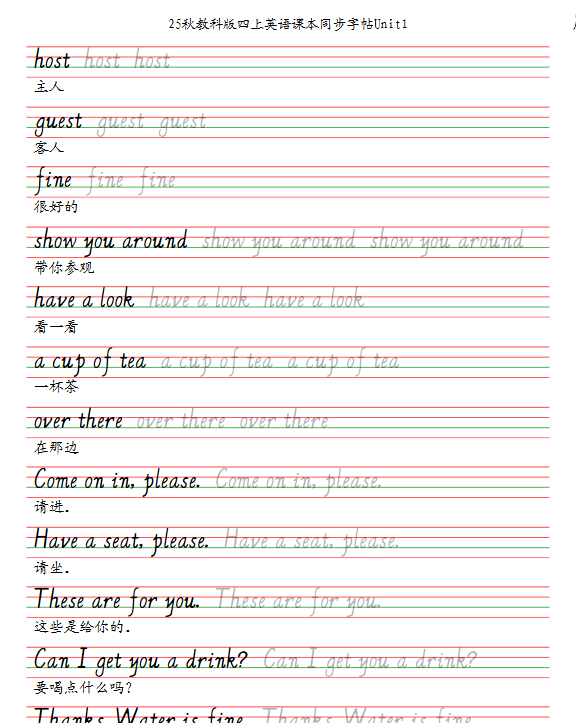 25秋教科版四上英语课本同步字帖Unit1
host host host
主人
guest guest guest
客人
fine fine fine
很好的
show you around show you around show you around
带你参观
have a look have a look have a look
看一看
a cup of tea a cup of tea a cup of tea
一杯茶
over there over there over there
在那边
Come on in, please. Come on in, please.
请进.
Have a seat, please. Have a seat, please.
请坐.
These are for you. These are for you.
这些是给你的.
Can I get you a drink? Can I get you a drink?
要喝点什么吗?
Thanks. Water is fine. Thanks. Water is fine.